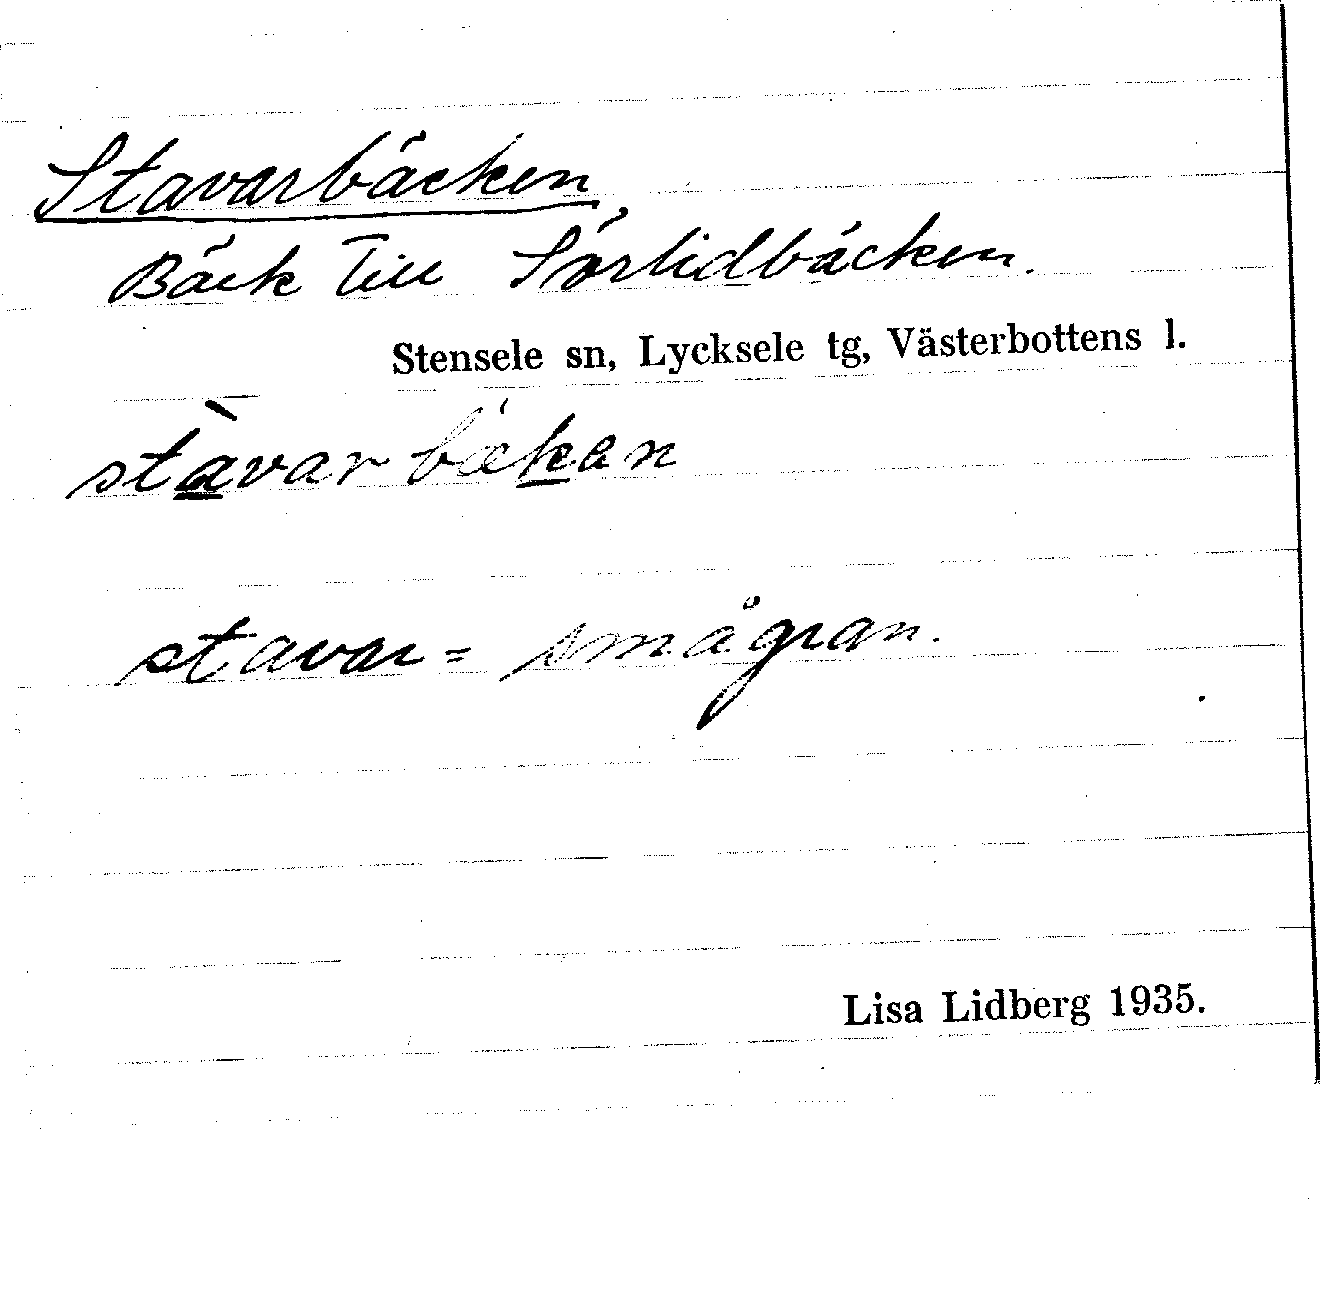 Stavarbäcken,
Bäck till Sörlidbäcken.
Stensele sn, Lycksele tg, Västerbottens l.
stàvarbækan
stavar = smågran.
Lisa Lidberg 1935.